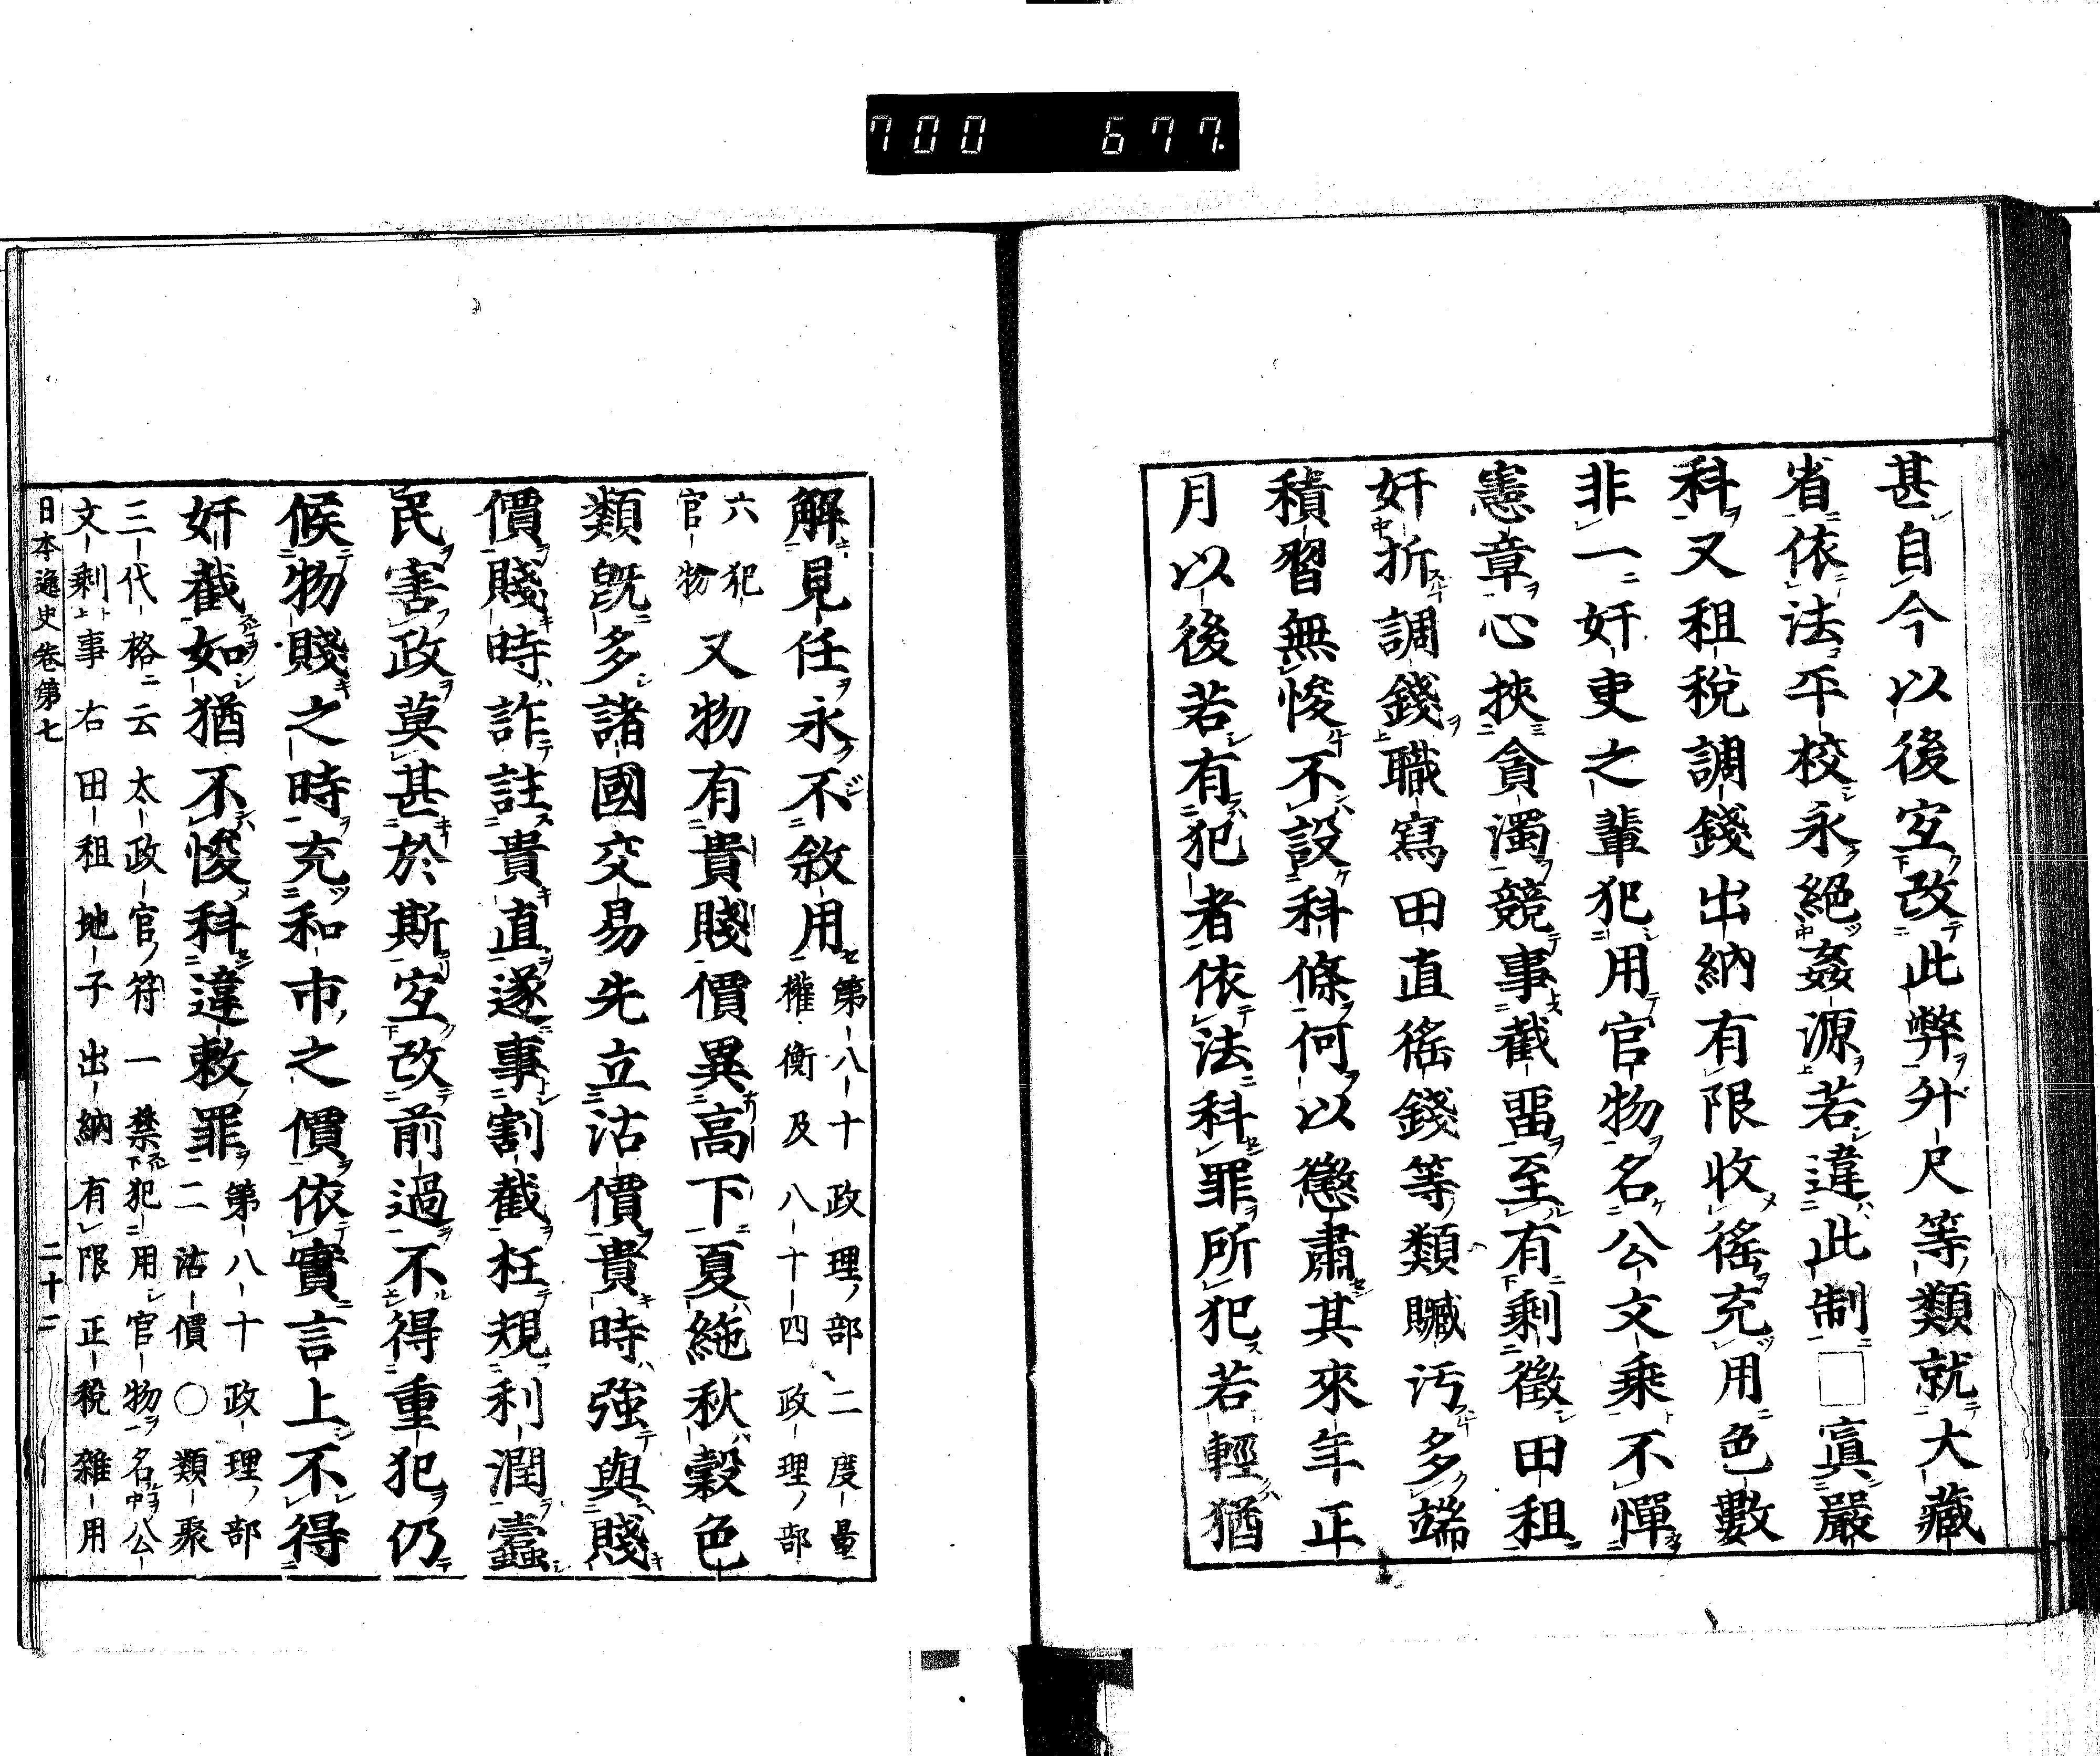 700 677.
甚自今以後宜改此弊升尺等類就大藏
省依法平校永絕姦源若違此制□寘嚴
科又租稅調錢出納有限收徭充用色數
非一奸吏之輩犯用官物名公文乘不憚
憲章心挾貪濁競事截畱至有剩徵田租
奸折調錢職寫田直徭錢等類贓汚多端
積習無悛不設科條何以懲肅其來年正
月以後若有犯者依法科罪所犯若輕猶
解見任永不敘用第八十政理ノ部二度量
權衡及八十四政理ノ部
六犯
官物
又物有貴賤價異高下夏絁秋穀色
類既多諸國交易先立沽價貴時強與賤
價賤時詐註貴直遂事割截枉規利潤蠹
民害政莫甚於斯宜改前過不得重犯仍
候物賤之時充和市之價依實言上不得
奸截如猶不悛科違敕罪第八十政理ノ部
二沽價○類聚
三代格ニ云太政官ノ符一禁犯用官物名公
文剩事右田租地子出納有限正稅雜用
日本逸史卷第七 二十三